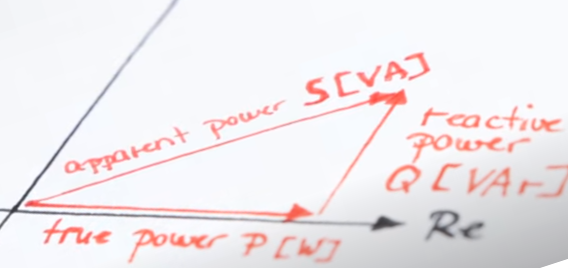 apparent power S[VA]
reactive
power
Q [VAr]
Re
true power P[W]